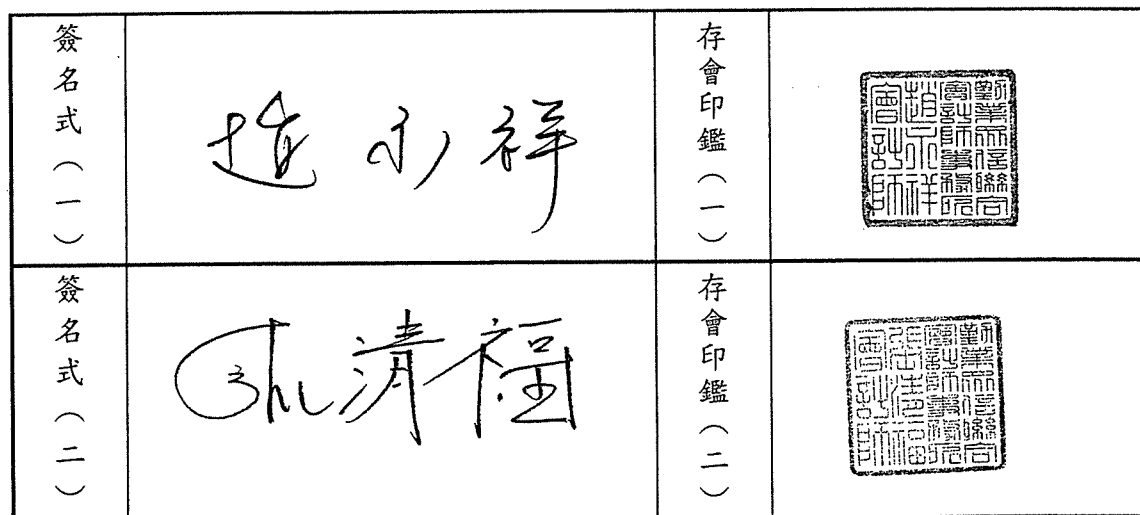 簽名式（一）
趙永祥
存會印鑑（一）
勤業眾信聯合
會計師事務所
趙永祥
會計師
簽名式（二）
張清福
存會印鑑（二）
勤業眾信聯合
會計師事務所
張清福
會計師